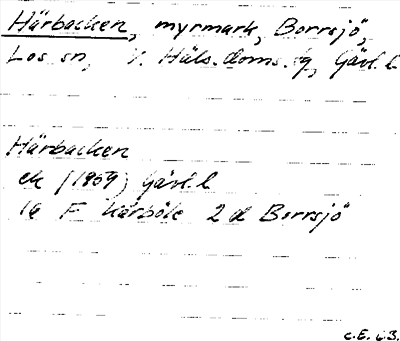 Härbacken, myrmark, Borrsjö,
Los sn, V. Häls. doms. fg, Gävl. l
Härbacken
ek (1959) Gävl. l
16 F Kårböle 2 d Borrsjö
C.E. L.B.